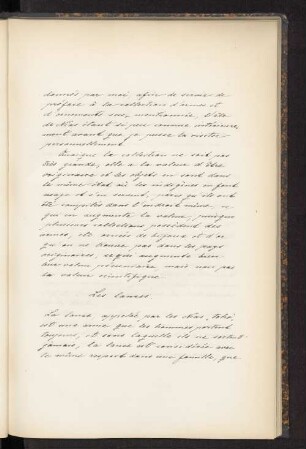 données par moi, afin de servir de
préface à la collection d'armes et
d'ornements sous mentionnée. L'île
de Nias étant si peu connue intérieure
ment avant que je pusse la visiter
personnellement.
Quoique la collection ne soit pas
très grande, elle a la valeur d'être
originaire et les objets en sont dans
le même état où les indigènes en font
usage et s'en servent, parce qu'ils ont
été complétés dans l'endroit même,
qui en augmente la valeur, puisque
plusieurs collections possèdent des
armes, etc. ornées de bijoux et d'or
qu'on ne trouve pas dans les pays
originaires, ce qui augmente bien
leur valeur pécuniaire mais non pas
la valeur scientifique.
Les lances.
La lance appelée par les Nias, toho,
est une arme que les hommes portent
toujours, et sans laquelle ils ne sortent
jamais, la lance est considérée avec
le même respect dans une famille, que